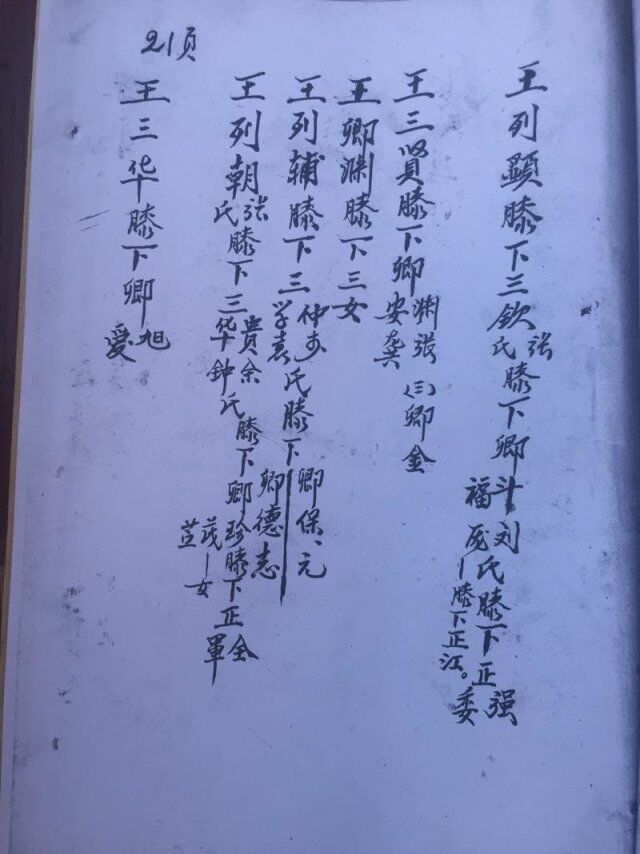 21页
王列顕膝下三钦张氏膝下卿斗刘氏膝下正强委
福茂一膝下正江。
王三贤膝下卿渊张(三)卿金
安龚
王卿渊膝下三女
王列辅膝下三仲李氏膝下卿保、元
学袁卿德志
王列朝张氏膝下三贵余华钟氏膝下卿珍膝下正全軍
茂一女
芝
王三华膝下卿旭爱